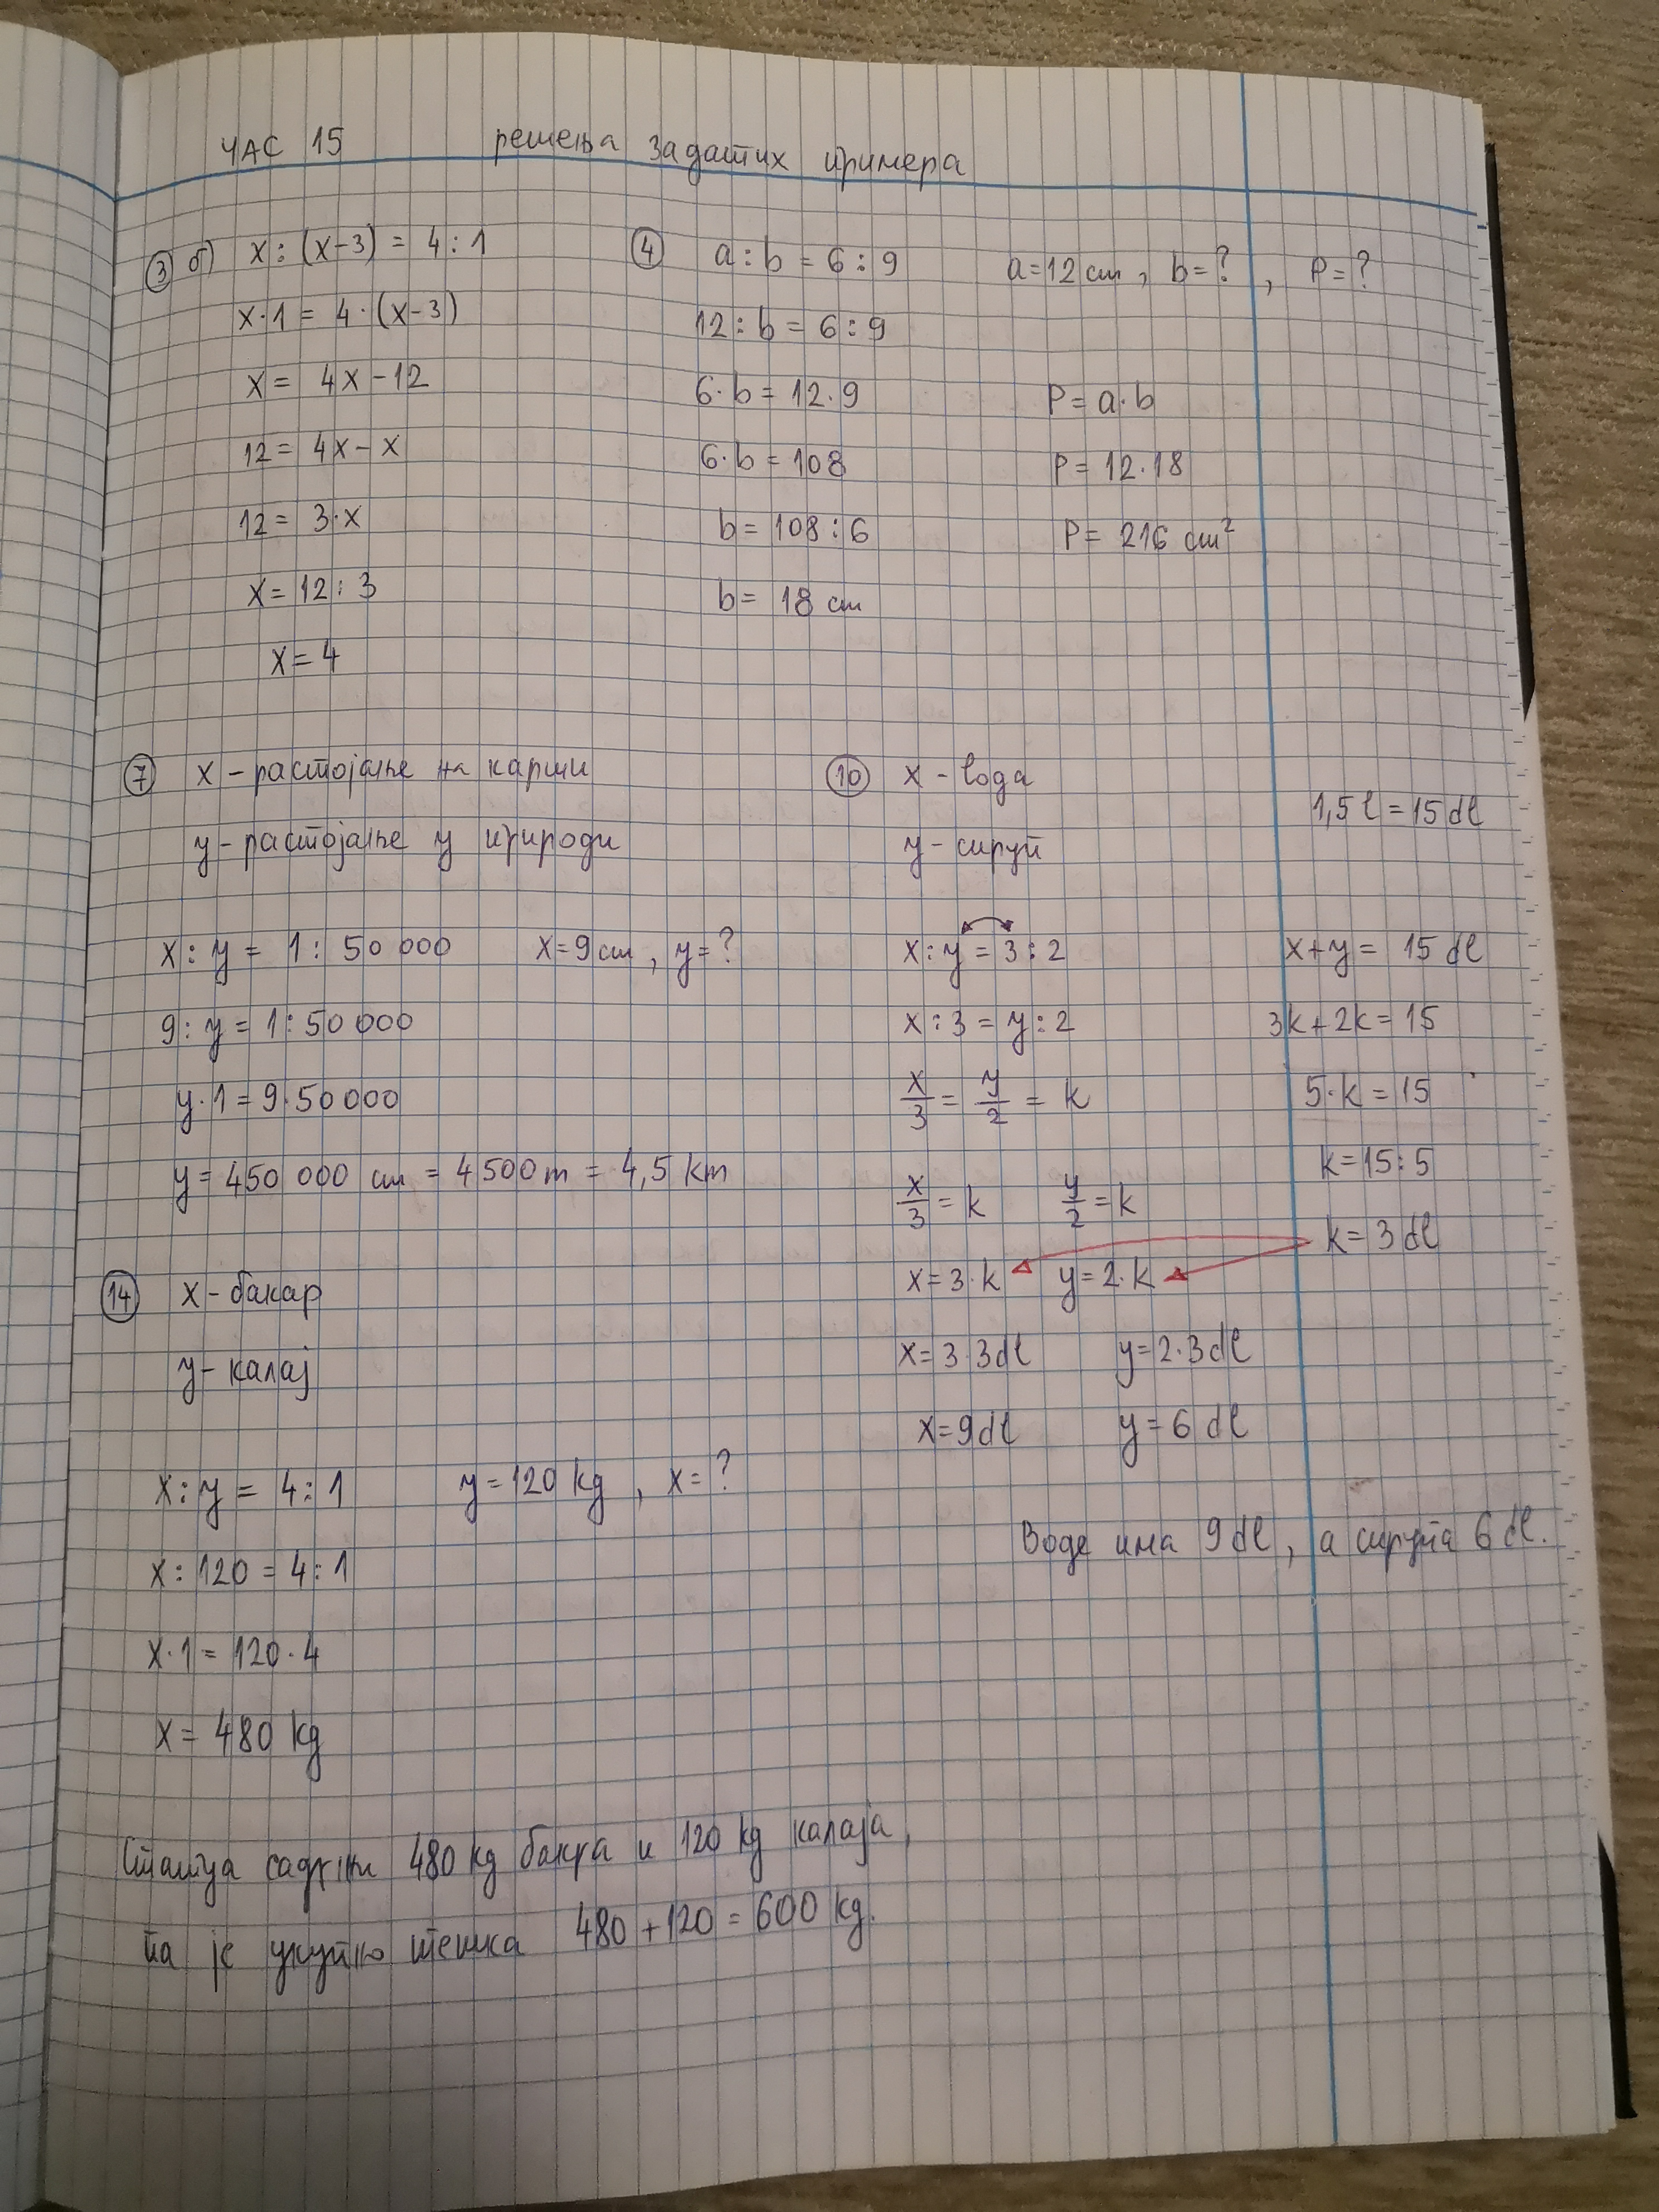 ЧАС 15 решења задатих примера
③ б) x : (x-3) = 4 : 1
x·1 = 4·(x-3)
x = 4x-12
12 = 4x-x
12 = 3·x
x = 12 : 3
x = 4
④ a : b = 6 : 9 a=12 cm, b=?, P=?
12 : b = 6 : 9
6·b = 12·9
6·b = 108
b = 108 : 6
b = 18 cm
P = a·b
P = 12·18
P = 216 cm²
⑦ x - растојање на карти
y - растојање у природи
x : y = 1 : 50 000 x=9cm, y=?
9 : y = 1 : 50 000
y·1 = 9·50 000
y = 450 000 cm = 4 500 m = 4,5 km
⑩ x - вода
y - сируп
1,5 l = 15 dl
x : y = 3 : 2
x : 3 = y : 2
x/3 = y/2 = k
x/3 = k y/2 = k
x = 3·k y = 2·k
x = 3·3dl y = 2·3dl
x = 9dl y = 6 dl
x+y = 15 dl
3k+2k = 15
5·k = 15
k = 15:5
k = 3 dl
Воде има 9 dl, а сирупа 6 dl.
⑭ x - бакар
y - калај
x : y = 4 : 1 y = 120 kg, x = ?
x : 120 = 4 : 1
x·1 = 120·4
x = 480 kg
Статуа садржи 480 kg бакра и 120 kg калаја,
па је укупно тешка 480 + 120 = 600 kg.